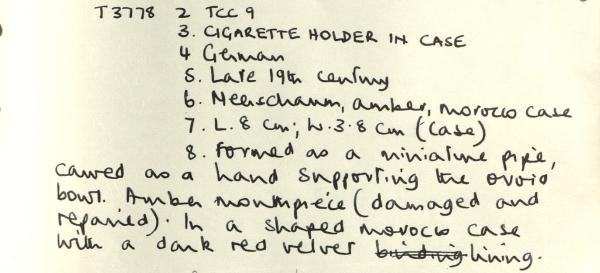 T3778 2 TCC 9
3. CIGARETTE HOLDER IN CASE
4 German
5. Late 19th century
6. Meerschaum, amber, morocco case
7. L. 8 cm; W. 3.8 cm (case)
8. Formed as a miniature pipe,
carved as a hand supporting the ovoid
bowl. Amber mouthpiece (damaged and
repaired). In a shaped morocco case
with a dark red velvet binding lining.